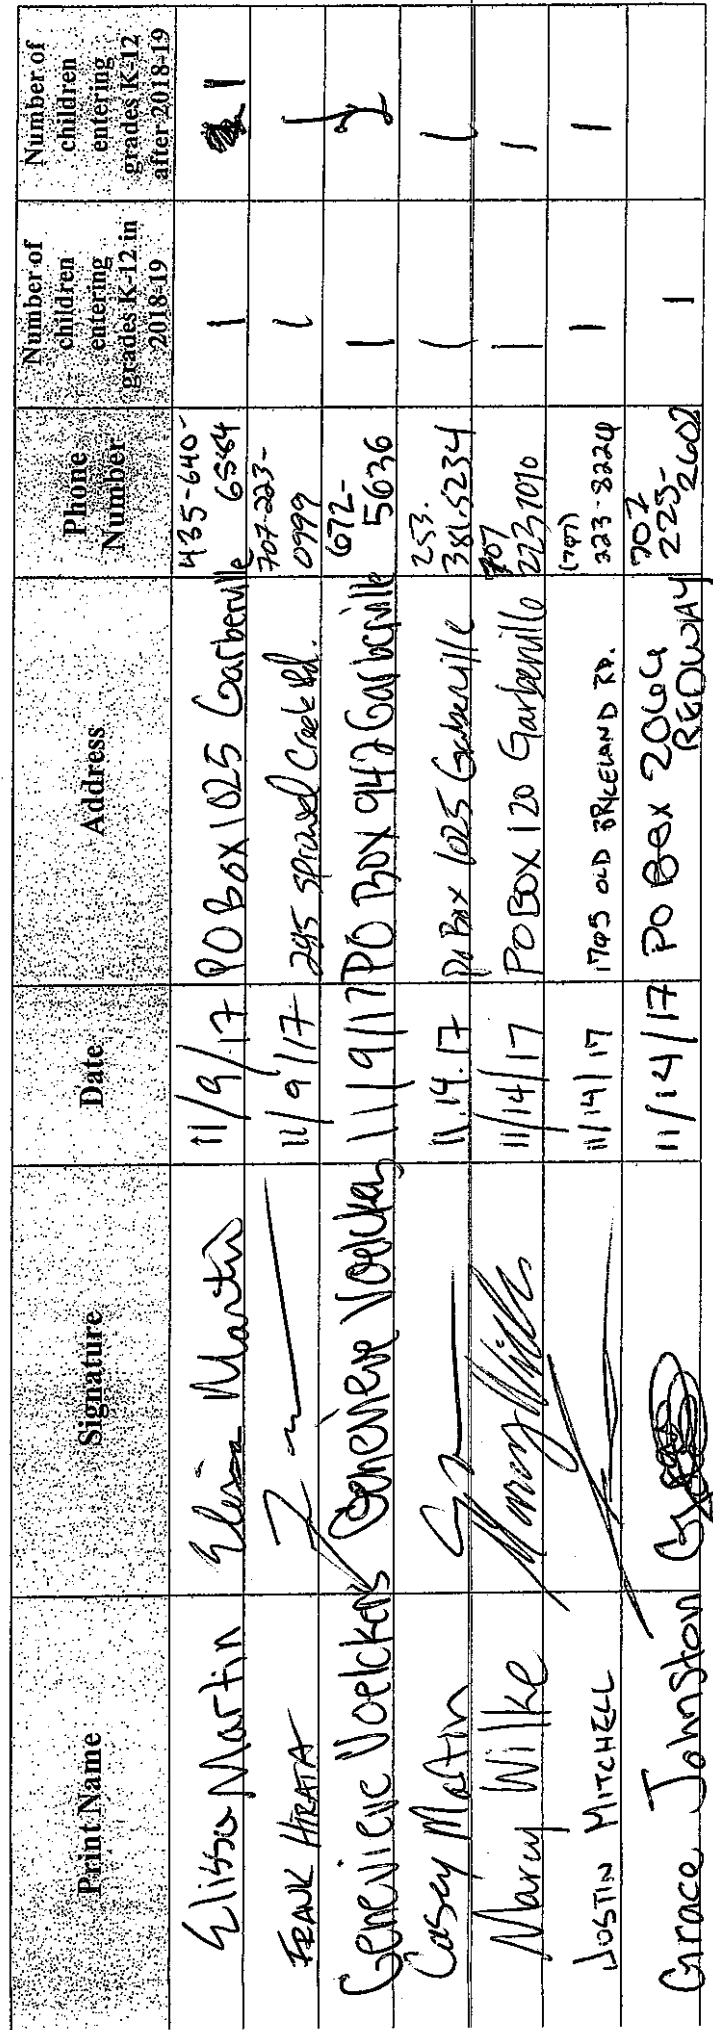 Print Name
Signature
Date
Address
Phone
Number
Number of
children
entering
grades K-12 in
2018-19
Number of
children
entering
grades K-12
after 2018-19
Elissa Martin
Elissa Martin
11/9/17
PO Box 1025 Garberville
435-640-
6584
1
1
FRANK HIRATA
11/9/17
295 Sprowel Creek Rd.
707-223-
0999
1
1
Genevieve Voelckers
Genevieve Voelckers
11/9/17
PO BOX 942 Garberville
672-
5636
1
2
Casey Martin
11.14.17
Po Box 1025 Garberville
253.
381.5234
1
1
Marcy Wilke
11/14/17
PO BOX 120 Garberville
707
223 7010
1
1
JUSTIN MITCHELL
11/14/17
1705 OLD BRICELAND RD.
(707)
223-8224
1
1
Grace Johnston
11/14/17
PO Box 2064
REDWAY
707
225-
2602
1